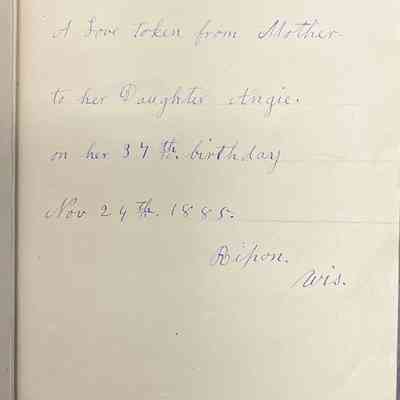 A Love Token from Mother
to her Daughter Angie.
on her 37th. birthday
Nov 24th. 1885.
Ripon.
Wis.